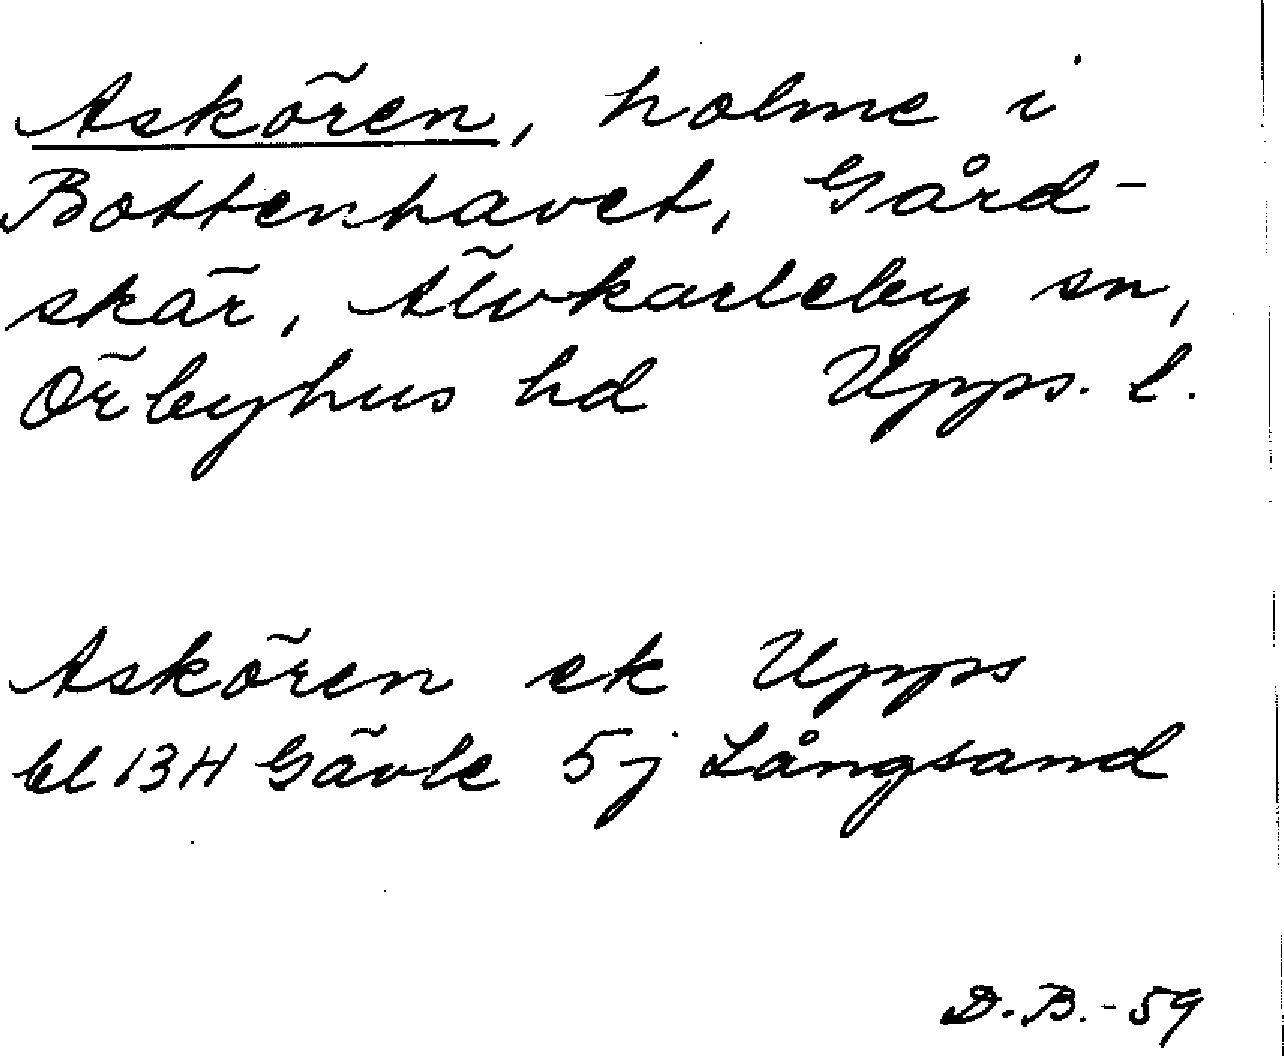 Askören, holme i
Bottenhavet, Gård-
skär, Älvkarleby sn,
Örbyhus hd Upps. l.
Askören ek Upps
bl 13H Gävle 5j Långsand
D.B.-59